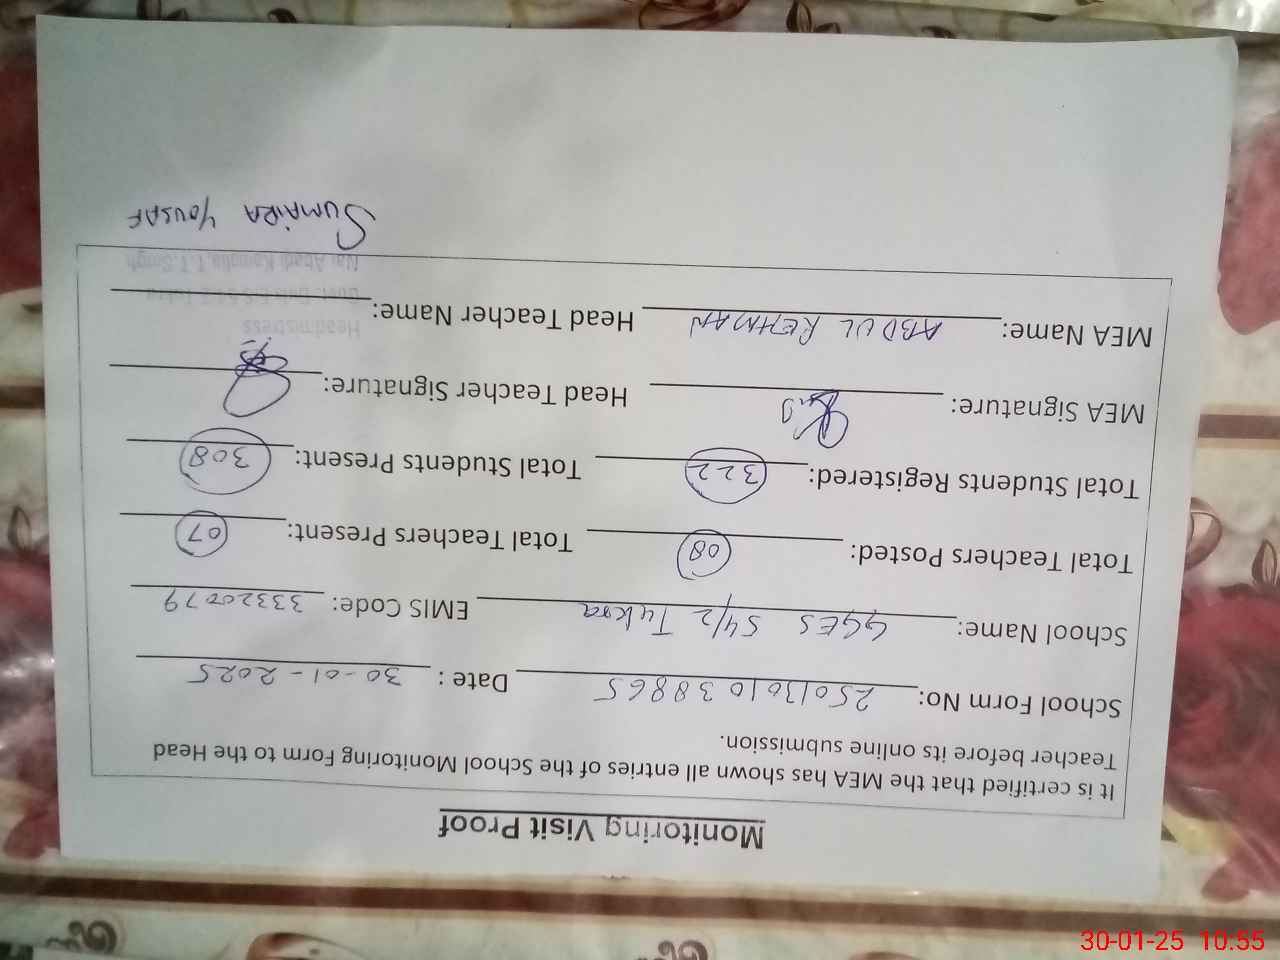 Monitoring Visit Proof
It is certified that the MEA has shown all entries of the School Monitoring Form to the Head
Teacher before its online submission.
School Form No: 2501301038865 Date : 30-01-2025
School Name: GGES 54/2 Tukra EMIS Code: 33320079
Total Teachers Posted: 08 Total Teachers Present: 07
Total Students Registered: 322 Total Students Present: 308
MEA Signature: Head Teacher Signature:
MEA Name: ABDUL REHMAN Head Teacher Name:
Headmistress
Nai Abadi Kamalia, T.T.Singh
SUMAIRA YOUSAF
30-01-25 10:55